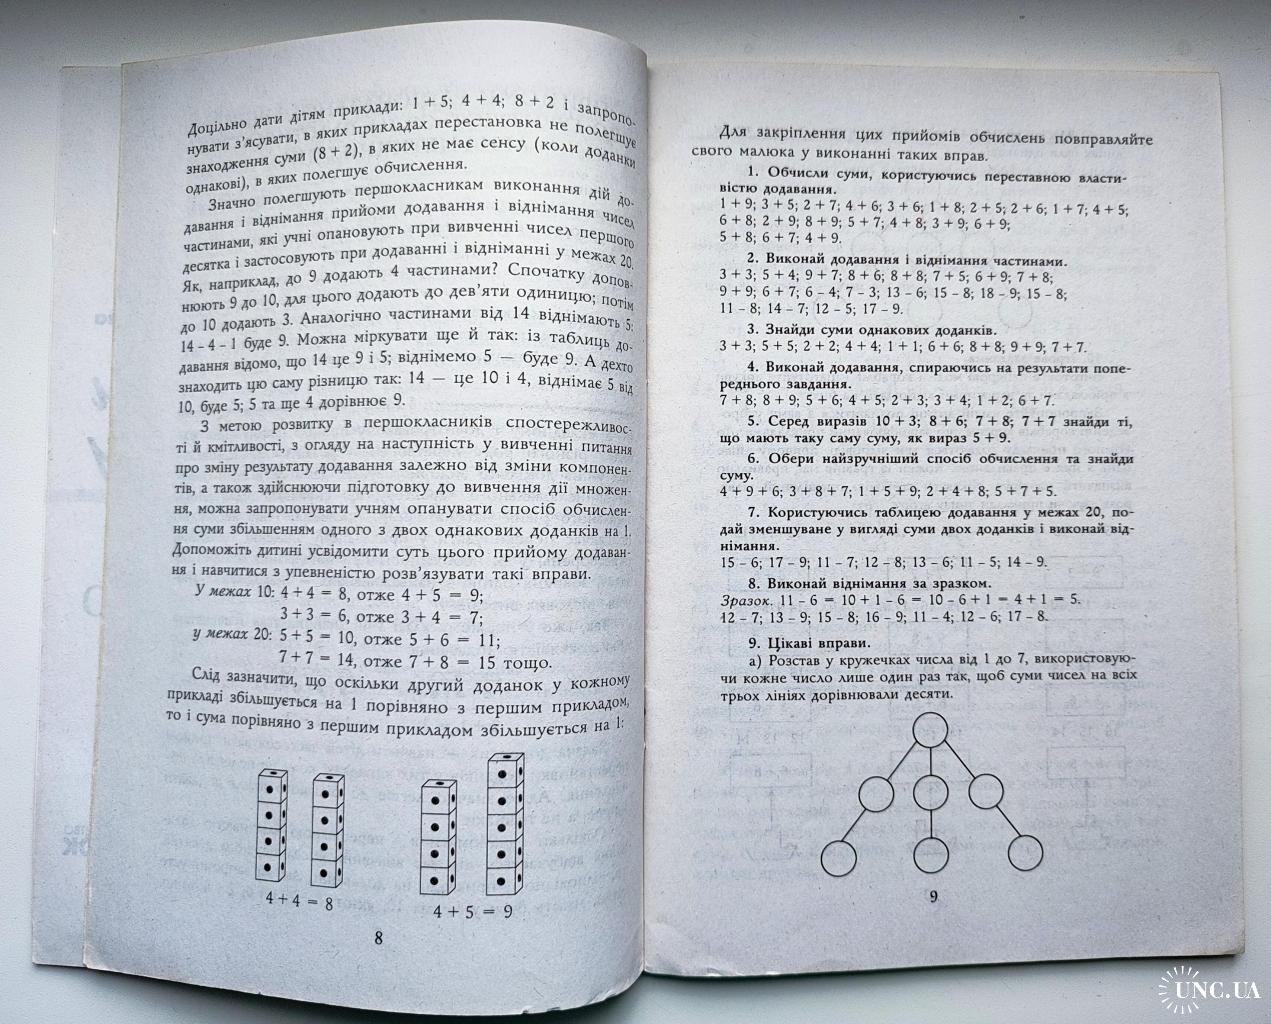 Доцільно дати дітям приклади: 1 + 5; 4 + 4; 8 + 2 і запропо-
нувати з'ясувати, в яких прикладах перестановка не полегшує
знаходження суми (8 + 2), в яких не має сенсу (коли доданки
однакові), в яких полегшує обчислення.
Значно полегшують першокласникам виконання дій до-
давання і віднімання прийоми додавання і віднімання чисел
частинами, які учні опановують при вивченні чисел першого
десятка і застосовують при додаванні і відніманні у межах 20.
Як, наприклад, до 9 додають 4 частинами? Спочатку допов-
нюють 9 до 10, для цього додають до дев'яти одиницю; потім
до 10 додають 3. Аналогічно частинами від 14 віднімають 5:
14 - 4 - 1 буде 9. Можна міркувати ще й так: із таблиць до-
давання відомо, що 14 це 9 і 5; віднімемо 5 — буде 9. А дехто
знаходить цю саму різницю так: 14 — це 10 і 4, віднімає 5 від
10, буде 5; 5 та ще 4 дорівнює 9.
З метою розвитку в першокласників спостережливос-
ті й кмітливості, з огляду на наступність у вивченні питання
про зміну результату додавання залежно від зміни компонен-
тів, а також здійснюючи підготовку до вивчення дії множен-
ня, можна запропонувати учням опанувати спосіб обчислен-
ня суми збільшенням одного з двох однакових доданків на 1.
Допоможіть дитині усвідомити суть цього прийому додаван-
ня і навчитися з упевненістю розв'язувати такі вправи.
У межах 10: 4 + 4 = 8, отже 4 + 5 = 9;
3 + 3 = 6, отже 3 + 4 = 7;
у межах 20: 5 + 5 = 10, отже 5 + 6 = 11;
7 + 7 = 14, отже 7 + 8 = 15 тощо.
Слід зазначити, що оскільки другий доданок у кожному
прикладі збільшується на 1 порівняно з першим прикладом,
то і сума порівняно з першим прикладом збільшується на 1:
4 + 4 = 8
4 + 5 = 9
8
Для закріплення цих прийомів обчислень повправляйте
свого малюка у виконанні таких вправ.
1. Обчисли суми, користуючись переставною власти-
вістю додавання.
1 + 9; 3 + 5; 2 + 7; 4 + 6; 3 + 6; 1 + 8; 2 + 5; 2 + 6; 1 + 7; 4 + 5;
6 + 8; 2 + 9; 8 + 9; 5 + 7; 4 + 8; 3 + 9; 6 + 9;
5 + 8; 6 + 7; 4 + 9.
2. Виконай додавання і віднімання частинами.
3 + 3; 5 + 4; 9 + 7; 8 + 6; 8 + 8; 7 + 5; 6 + 9; 7 + 8;
9 + 9; 6 + 7; 6 - 4; 7 - 3; 13 - 6; 15 - 8; 18 - 9; 15 - 8;
11 - 8; 14 - 7; 12 - 5; 17 - 9.
3. Знайди суми однакових доданків.
3 + 3; 5 + 5; 2 + 2; 4 + 4; 1 + 1; 6 + 6; 8 + 8; 9 + 9; 7 + 7.
4. Виконай додавання, спираючись на результати попе-
реднього завдання.
7 + 8; 8 + 9; 5 + 6; 4 + 5; 2 + 3; 3 + 4; 1 + 2; 6 + 7.
5. Серед виразів 10 + 3; 8 + 6; 7 + 8; 7 + 7 знайди ті,
що мають таку саму суму, як вираз 5 + 9.
6. Обери найзручніший спосіб обчислення та знайди
суму.
4 + 9 + 6; 3 + 8 + 7; 1 + 5 + 9; 2 + 4 + 8; 5 + 7 + 5.
7. Користуючись таблицею додавання у межах 20, по-
дай зменшуване у вигляді суми двох доданків і виконай від-
німання.
15 - 6; 17 - 9; 11 - 7; 12 - 8; 13 - 6; 11 - 5; 14 - 9.
8. Виконай віднімання за зразком.
Зразок. 11 - 6 = 10 + 1 - 6 = 10 - 6 + 1 = 4 + 1 = 5.
12 - 7; 13 - 9; 15 - 8; 16 - 9; 11 - 4; 12 - 6; 17 - 8.
9. Цікаві вправи.
а) Розстав у кружечках числа від 1 до 7, використовую-
чи кожне число лише один раз так, щоб суми чисел на всіх
трьох лініях дорівнювали десяти.
9
UNC.UA